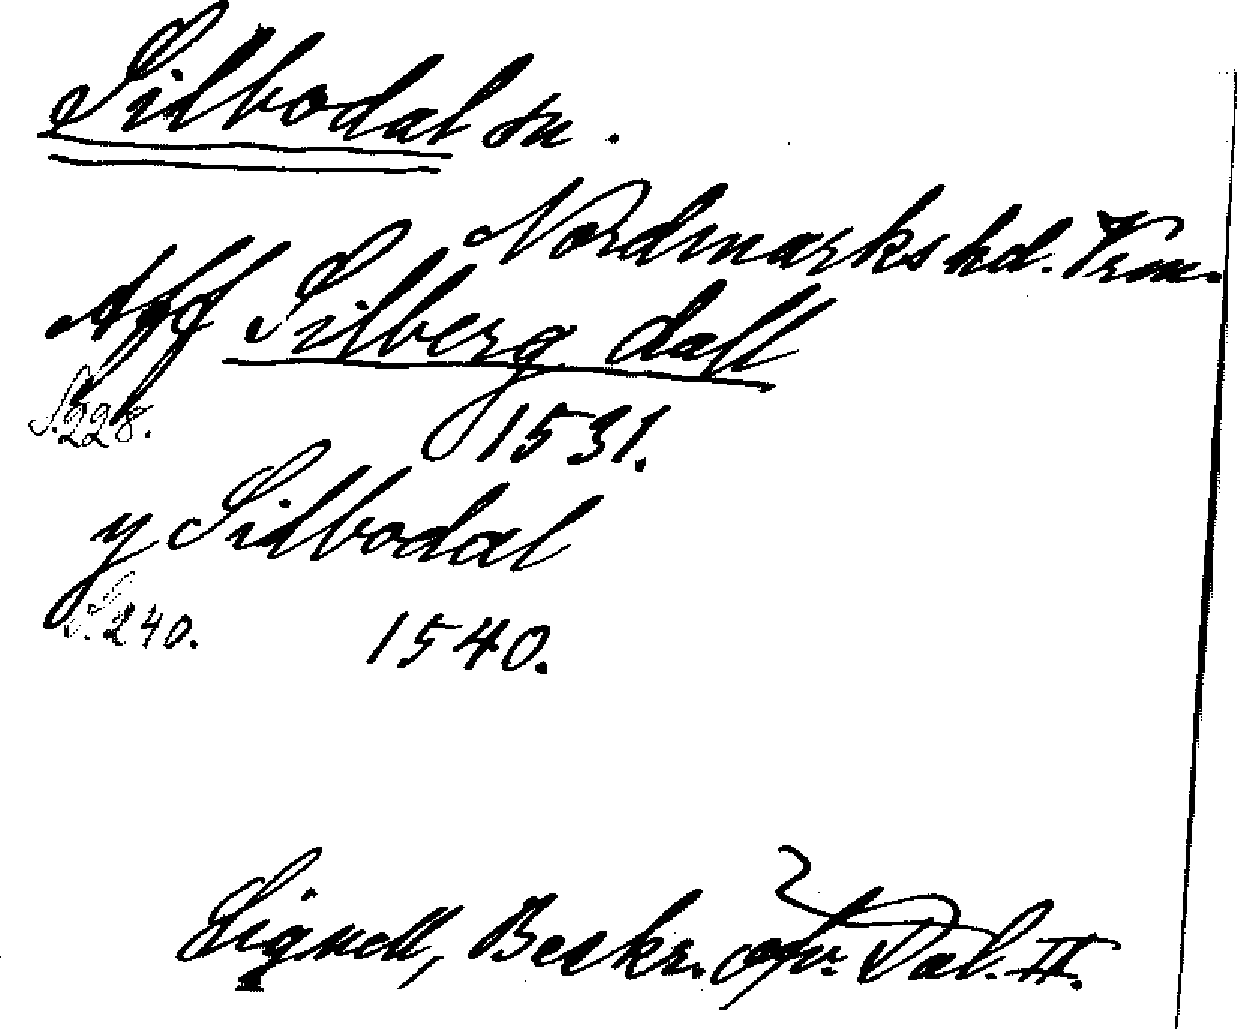 Silbodal sn.
Nordmarks hd. Vrm.
Aff Silberg dall
S. 228.
1531.
y Silbodal
S. 240.
1540.
Lignell, Beskr. öfv. Dal. II.